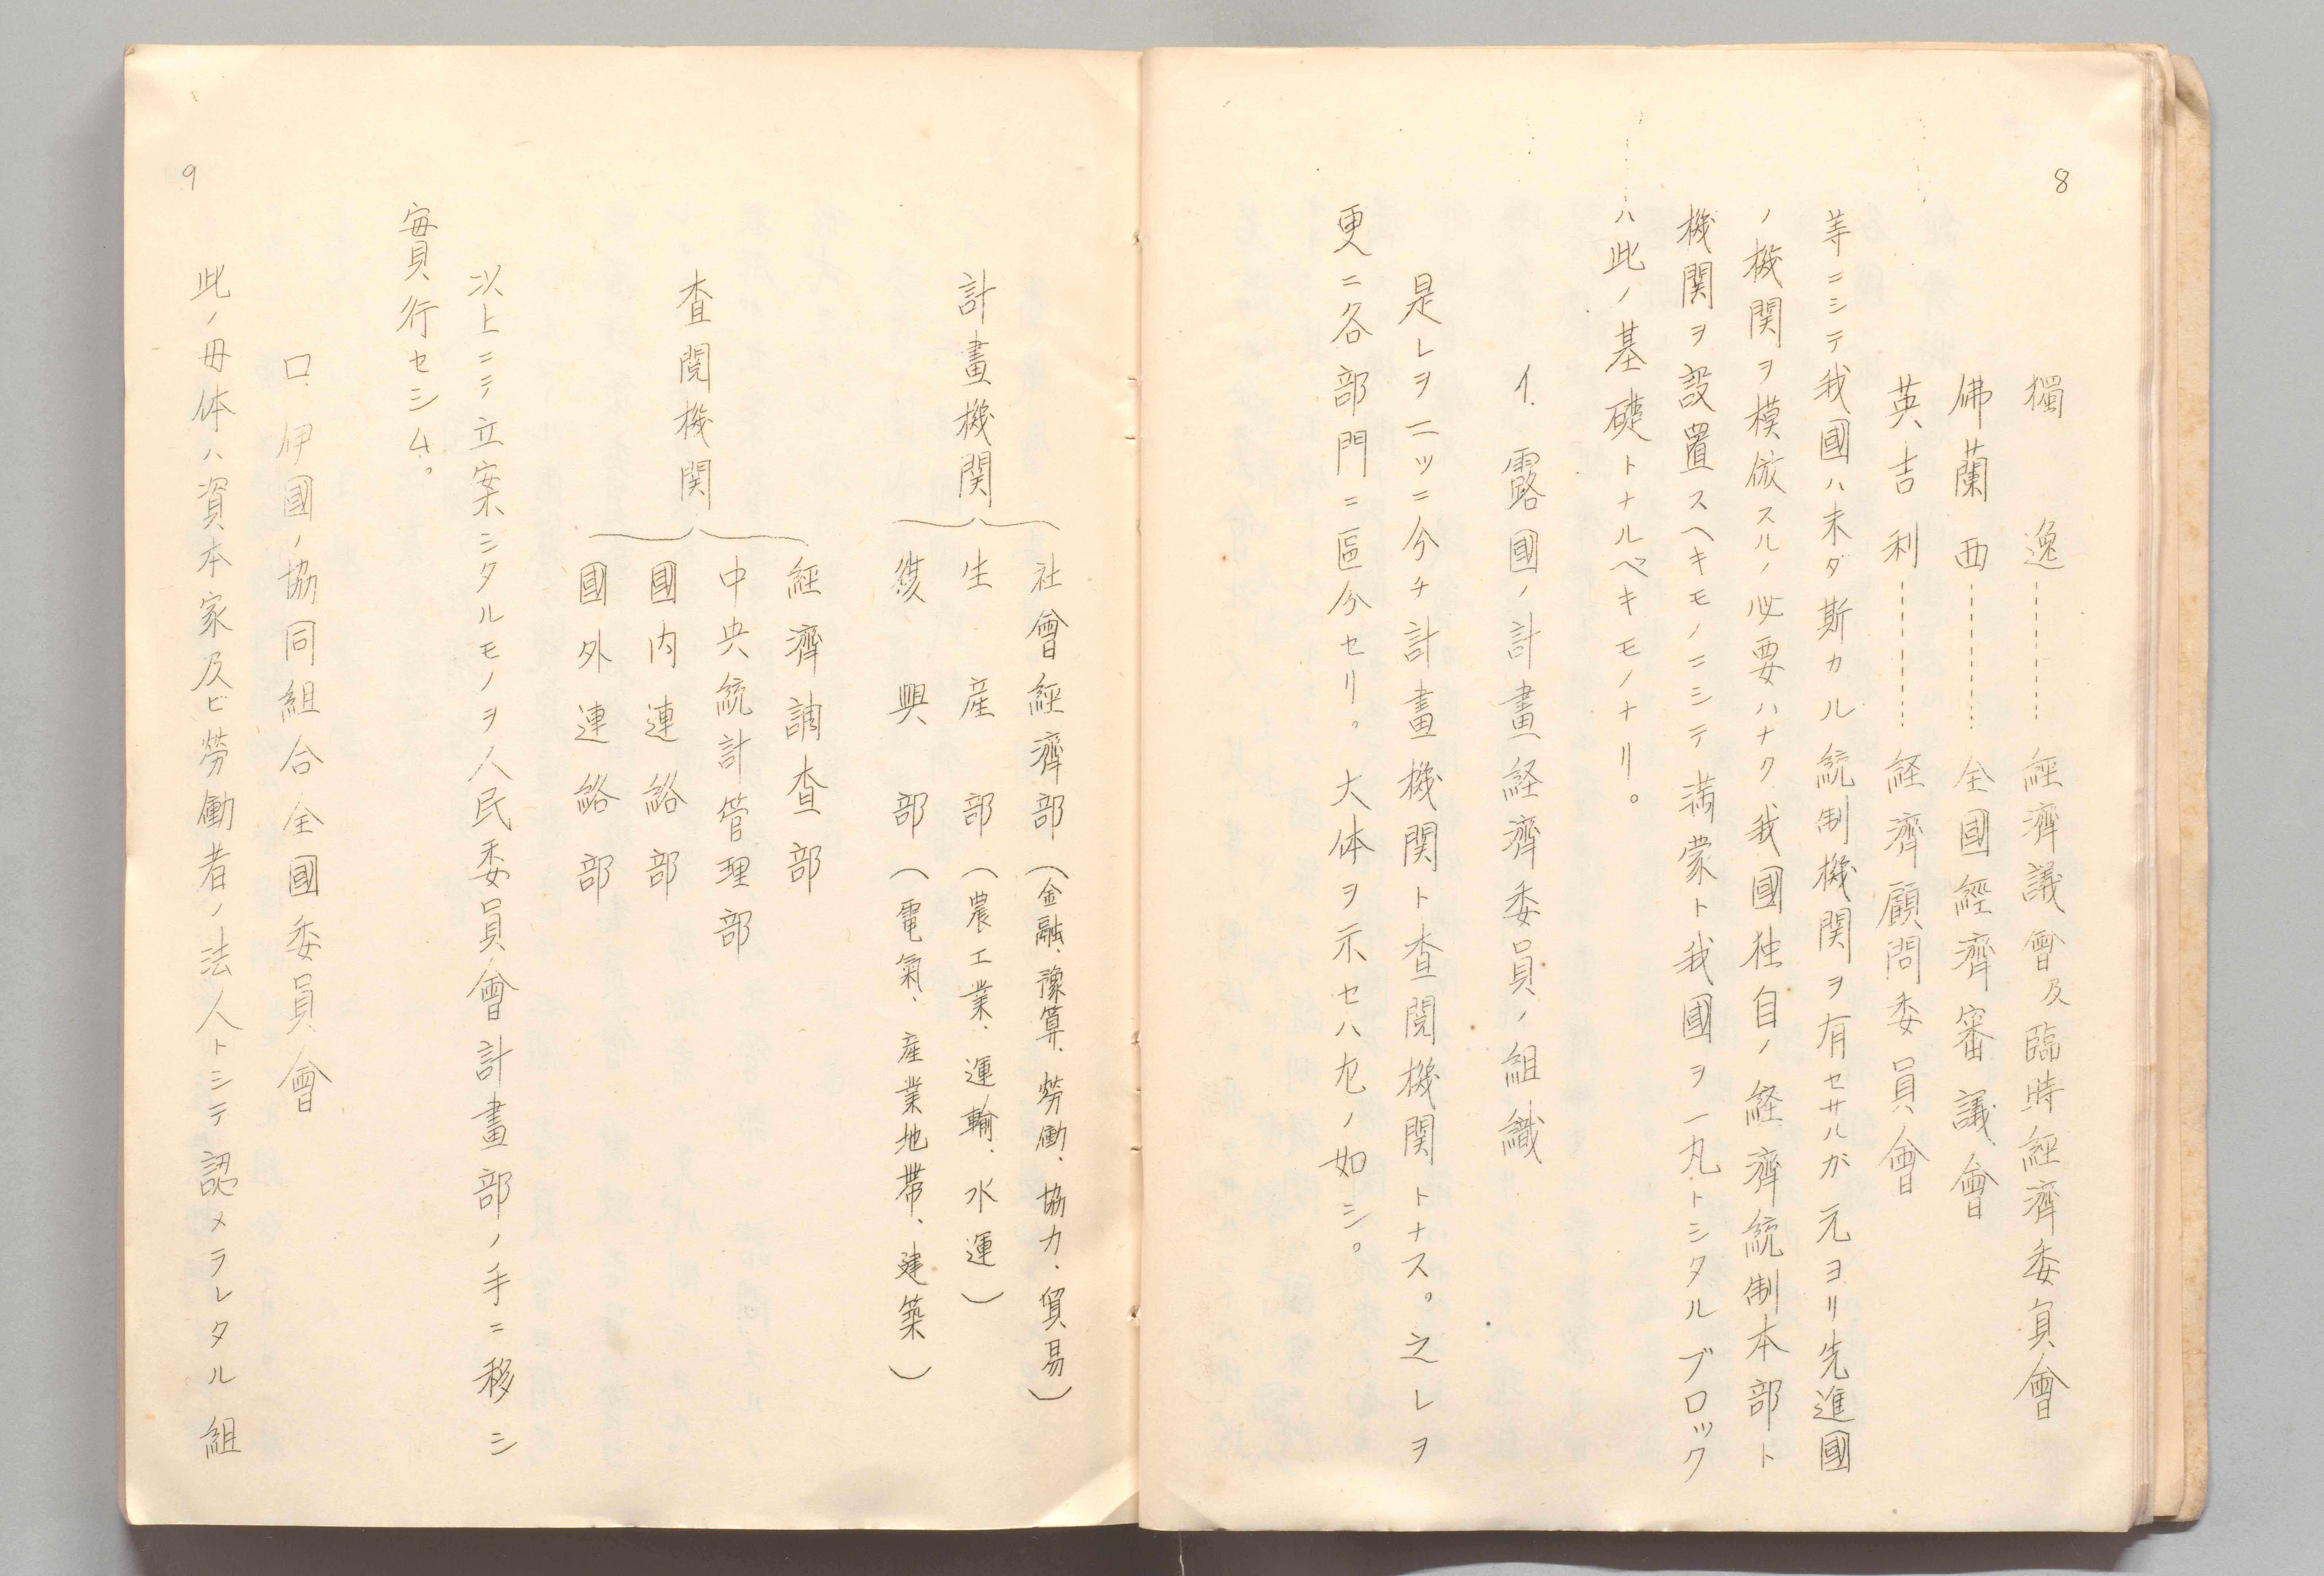 8
獨逸………經濟議會及臨時經濟委員會
佛蘭西………全國經濟審議會
英吉利………経濟顧問委員會
等ニシテ我國ハ未ダ斯カル統制機関ヲ有セザルガ元ヨリ先進國
ノ機関ヲ模倣スルノ必要ハナク我國独自ノ経濟統制本部ト
機関ヲ設置スヘキモノニシテ満蒙ト我國ヲ一丸トシタルブロック
ハ此ノ基礎トナルベキモノナリ。
イ. 露國ノ計畫経濟委員ノ組織
是レヲ二ツニ分チ計畫機関ト査閲機関トナス。之レヲ
更ニ各部門ニ區分セリ。大体ヲ示セハ左ノ如シ。
計畫機関
社會經濟部(金融、豫算、勞働、協力、貿易)
生産部(農工業、運輸、水運)
復興部(電氣、産業地帯、建築)
査閲機関
經濟調査部
中央統計管理部
國内連絡部
國外連絡部
以上ニテ立案シタルモノヲ人民委員會計畫部ノ手ニ移シ
實行セシム。
ロ. 伊國ノ協同組合全國委員會
此ノ母体ハ資本家及ビ勞働者ノ法人トシテ認メラレタル組
9